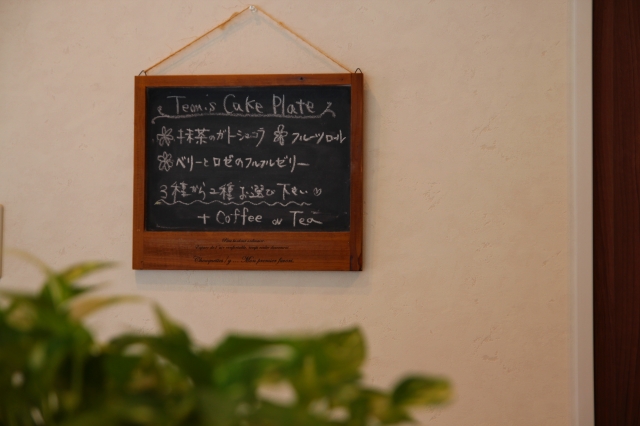 Team's Cake Plate
抹茶のガトーショコラ フルーツロール
ベリーとロゼのプルプルゼリー
3種から2種お選び下さい♡
+ Coffee or Tea